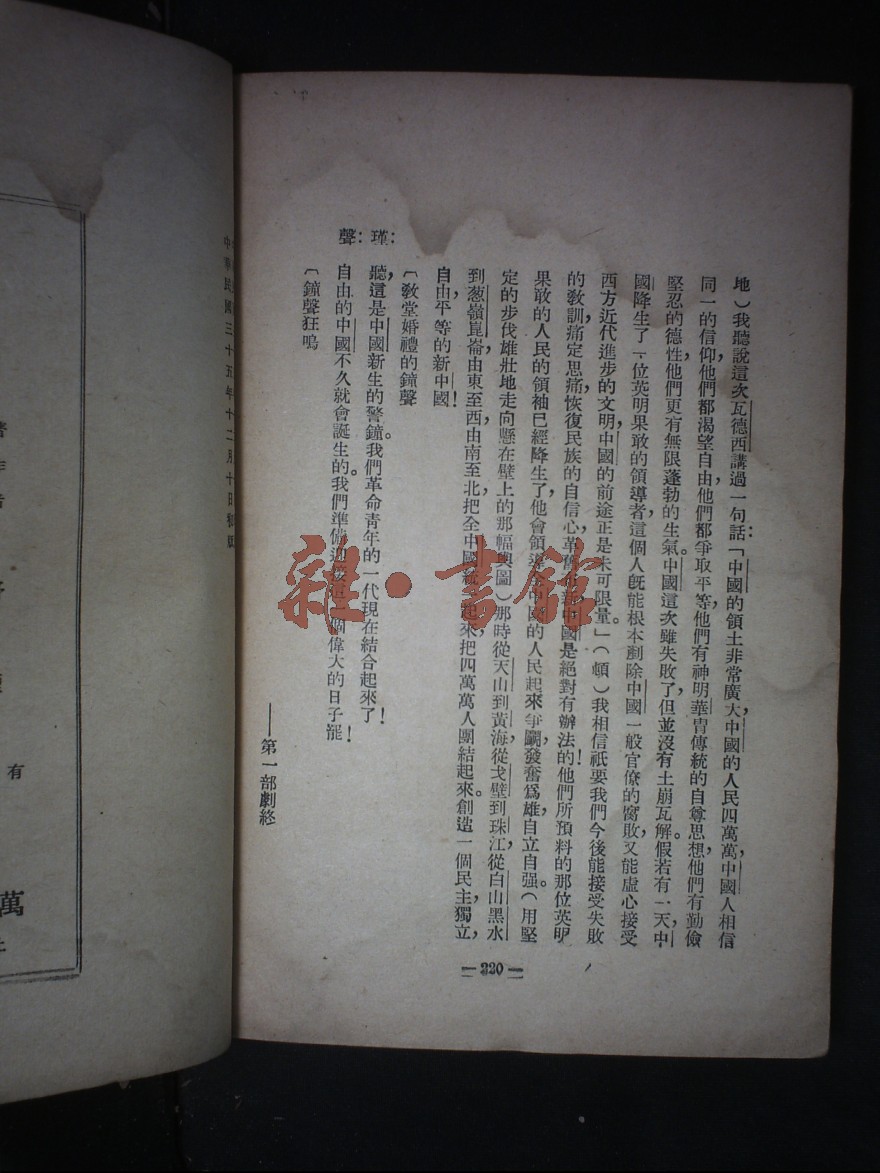 地)我聽說這次瓦德西講過一句話:「中國的領土非常廣大,中國的人民四萬萬,中國人相信
同一的信仰,他們都渴望自由,他們都爭取平等,他們有神明華冑傳統的自尊思想,他們有勤儉
堅忍的德性,他們更有無限蓬勃的生氣。中國這次雖失敗了,但並沒有土崩瓦解。假若有一天,中
國降生了一位英明果敢的領導者,這個人旣能根本剷除中國一般官僚的腐敗,又能虛心接受
西方近代進步的文明,中國的前途正是未可限量。」(頓)我相信祇要我們今後能接受失敗
的敎訓,痛定思痛,恢復民族的自信心,革舊布新,中國是絕對有辦法的!他們所預料的那位英明
果敢的人民的領袖已經降生了,他會領導全中國的人民起來爭鬭,發奮爲雄,自立自强。(用堅
定的步伐雄壯地走向懸在壁上的那幅輿圖)那時從天山到黃海,從戈壁到珠江,從白山黑水
到葱嶺崑崙,由東至西,由南至北,把全中國統一起來,把四萬萬人團結起來。創造一個民主,獨立,
自由,平等的新中國!
〔敎堂婚禮的鐘聲
瑾: 聽,這是中國新生的警鐘。我們革命靑年的一代現在結合起來了!
聲: 自由的中國不久就會誕生的。我們準備迎接這一個偉大的日子罷!
〔鐘聲狂鳴
——第一部劇終
— 320 —
中華民國三十五年十二月十日初版
著作者
有
萬
雜·書館